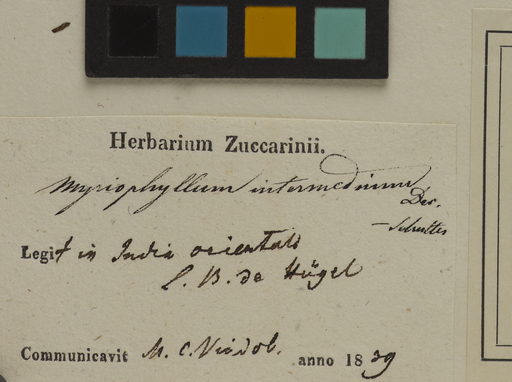 Herbarium Zuccarinii.
Myriophyllum intermedium
Dec.
— Schultes
Legit in India orientali
L. B. de Hügel
Communicavit M. C. Vindob. anno 1839